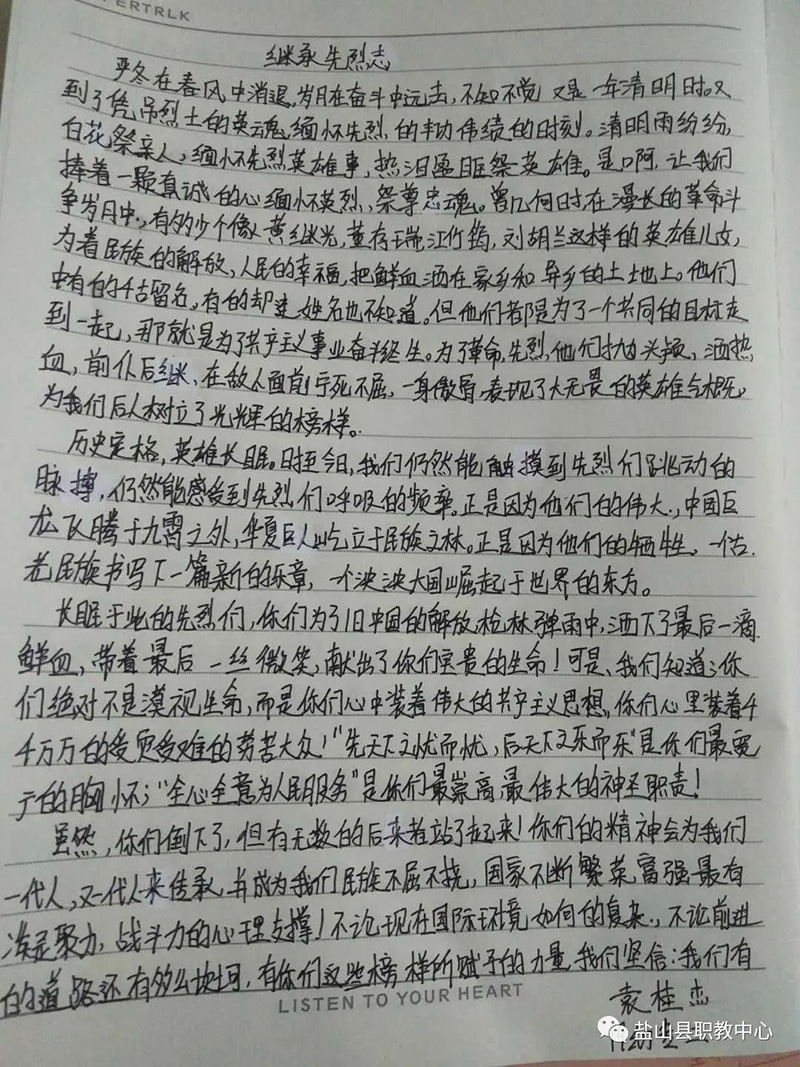 PERTRLK
继承先烈志
严冬在春风中消退,岁月在奋斗中远去,不知不觉又是一年清明时。又
到了凭吊烈士的英魂,缅怀先烈的丰功伟绩的时刻。清明雨纷纷,
白花祭亲人,缅怀先烈英雄事,热泪盈眶祭英雄。是啊,让我们
捧着一颗真诚的心缅怀英烈、祭尊忠魂。曾几何时在漫长的革命斗
争岁月中,有多少个像黄继光,董存瑞江竹筠,刘胡兰这样的英雄儿女,
为着民族的解放,人民的幸福,把鲜血洒在家乡和异乡的土土地上。他们
中有的千古留名,有的却连姓名也不知道。但他们都是为了一个共同的目标走
到一起,那就是为了共产主义事业奋斗终生。为了革命,先烈,他们抛头颅,洒热
血,前仆后继,在敌人面前宁死不屈,一身傲骨,表现了大无畏的英雄气概,
为我们后人树立了光辉的榜样。
历史定格,英雄长眠。时至今日,我们仍然能触摸到先烈们跳动的
脉搏,仍然能感受到先烈们呼吸的频率。正是因为他们的伟大,中国巨
龙飞腾于九霄之外,华夏巨人屹立于民族之林。正是因为他们的牺牲,一古
老民族书写下一篇新的乐章,一个泱泱大国崛起于世界的东方。
长眠于此的先烈们,你们为了旧中国的解放,枪林弹雨中,洒下了最后一滴
鲜血,带着最后一丝微笑,献出了你们宝贵的生命!可是、我们知道:你
们绝对不是漠视生命,而是你们心中装着伟大的共产主义思想,你们心里装着千
千万万的受贫受难的劳苦大众!"先天下之忧而忧,后天下之乐而乐"是你们最宽
广的胸怀;"全心全意为人民服务"是你们最崇高,最伟大的神圣职责!
虽然,你们倒下了,但有无数的后来者站了起来!你们的精神会为我们
一代人,又一代人来传承,并成为我们民族不屈不挠,国家不断繁荣富强最有
凝聚力,战斗力的心理支撑!不论现在国际环境如何的复杂,不论前进
的道路还有多么坎坷,有你们这些榜样所赋予的力量,我们坚信:我们有
LISTEN TO YOUR HEART
袁桂杰
盐山县职教中心